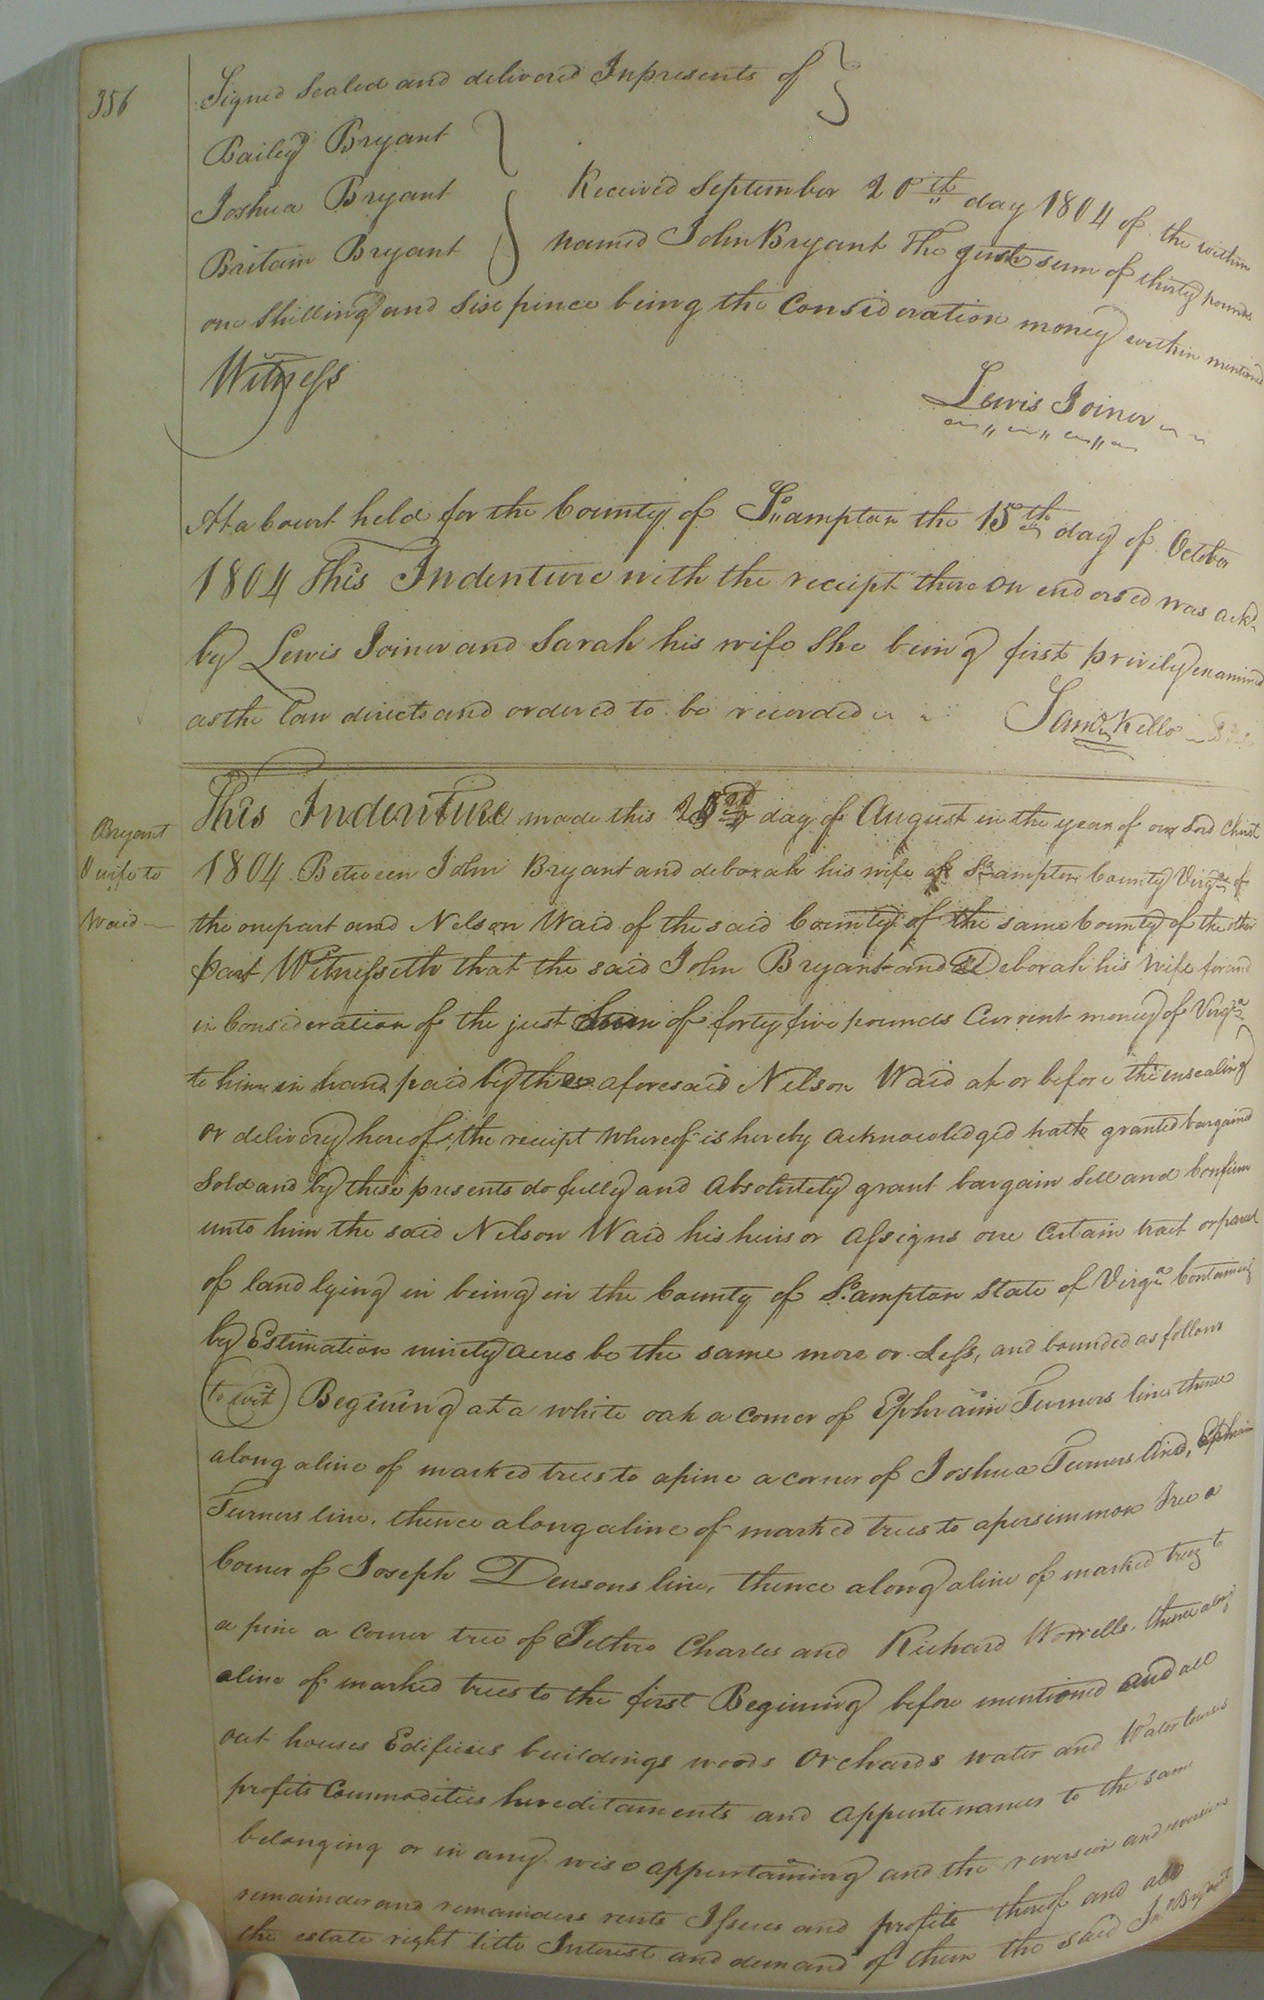 356
Signed Sealed and delivered Inpresents of
Bailey Bryant
Joshua Bryant
Britain Bryant
Received September 20th day 1804 of the within
named John Bryant The just sum of thirty pounds
one Shilling and Six pince being the Consideration money within mentioned
Witness
Lewis Joiner
At a Court held for the County of So.ampton the 15th day of October
1804 This Indenture with the receipt there on endorsed was ackd
by Lewis Joiner and Sarah his wife She being first privily examined
as the law directs and ordered to be recorded
Saml Kello
Bryant
& wife to
Waid
This Indenture made this day of August in the year of our Lord Christ
1804 Between John Bryant and deborah his wife of So.ampton County Virga of
the onepart and Nelson Waid of the said County of the same County of the other
part Witnesseth that the said John Bryant and Deborah his Wife for and
in Consideration of the just Sum of forty five pounds Current money of Virga
to him in hand paid by the aforesaid Nelson Waid at or before the ensealing
or delivery hereof, the receipt whereof is hereby acknowledged hath granted bargained
Sold and by these presents do fully and Absolutely grant bargain Sell and Confirm
unto him the said Nelson Waid his heirs or Assigns one Certain tract or parcel
of land lying in being in the County of So.ampton State of Virga Containing
by Estimation ninety acres be the same more or Less, and bounded as follows
to wit Begining at a white oak a corner of Ephraim Turners line thence
along a line of marked trees to a pine a corner of Joshua Turners And, Ephraim
Turners line, thence along a line of marked trees to a persimmon Tree a
Corner of Joseph Densons line, thence along a line of marked trees to
a pine a corner tree of Jethro Charles and Richard Worrells, thence along
a line of marked trees to the first Begining before mentioned and all
out houses Edifices buildings woods Orchards water and Water Courses
profits Commodities hereditaments and Appurtenances to the same
belonging or in any wise appurtaining and the reversion and reversions
remainder and remainders rents Issues and profits thereof and all
the estate right title Interest and demand of them the said Jno Bryant